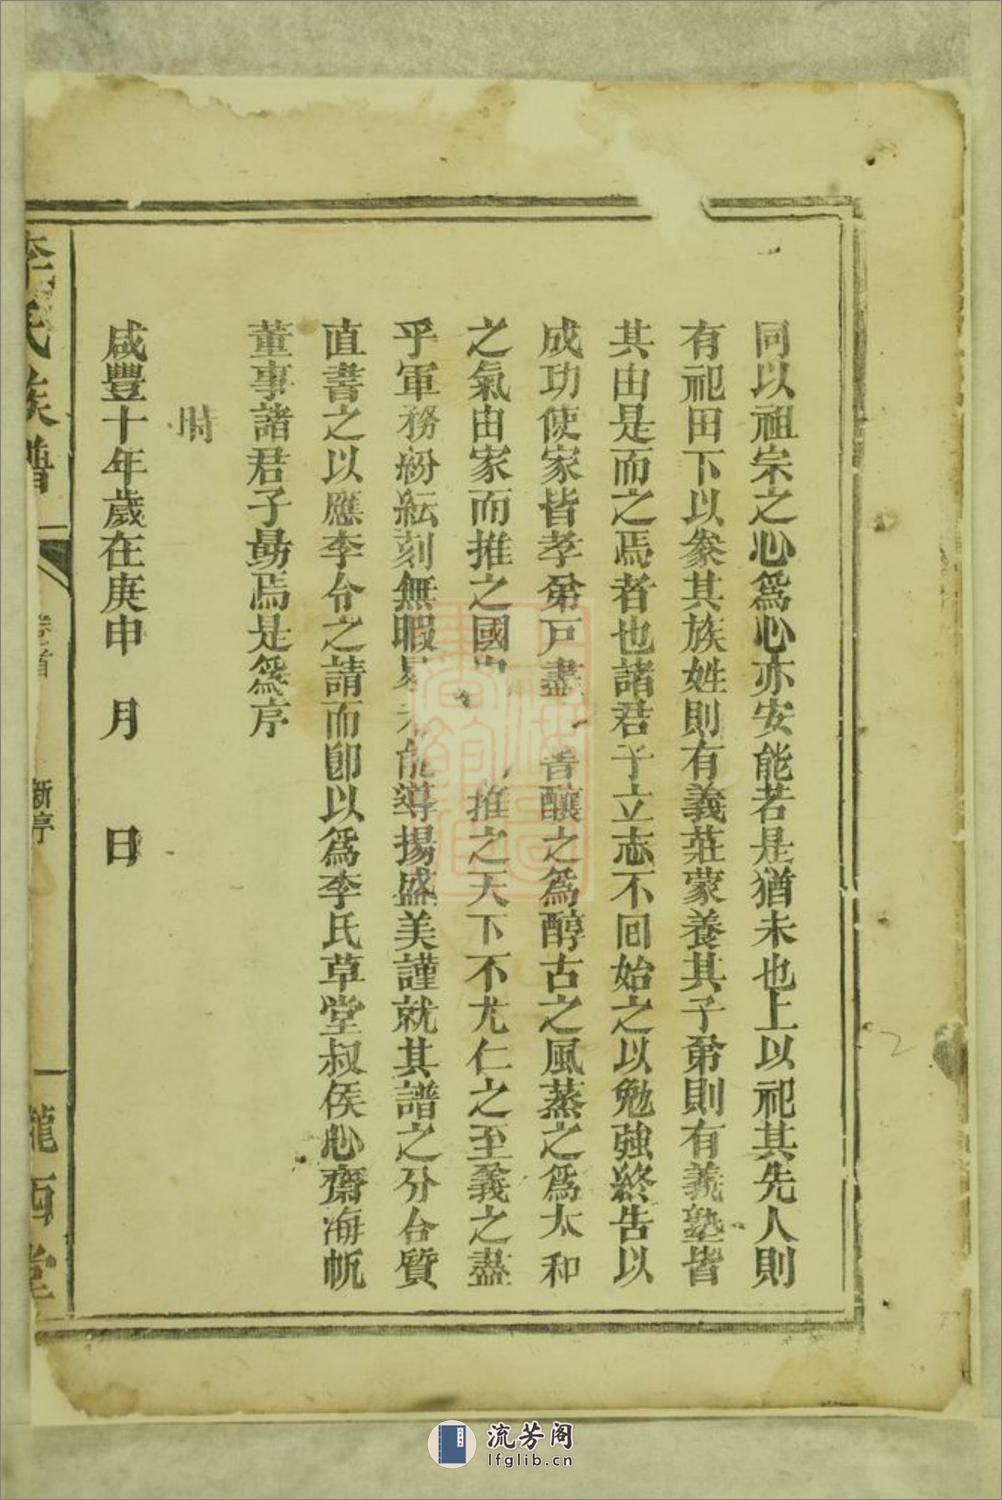 同以祖宗之心爲心亦安能若是猶未也上以祀其先人則
有祀田下以豢其族姓則有義莊蒙養其子弟則有義塾皆
其由是而之焉者也諸君子立志不回始之以勉強終告以
成功使家皆孝弟戸盡 香釀之爲醇古之風蒸之爲太和
之氣由家而推之國 推之天下不尤仁之至義之盡
乎軍務紛紜刻無暇晷未能導揚盛美謹就其譜之分合質
直書之以應李令之請而卽以爲李氏草堂叔侯心齋海帆
董事諸君子勗焉是爲序
時
咸豐十年歲在庚申 月 日
李氏族譜 卷首 新序 隴西堂
流芳阁
lfglib.cn